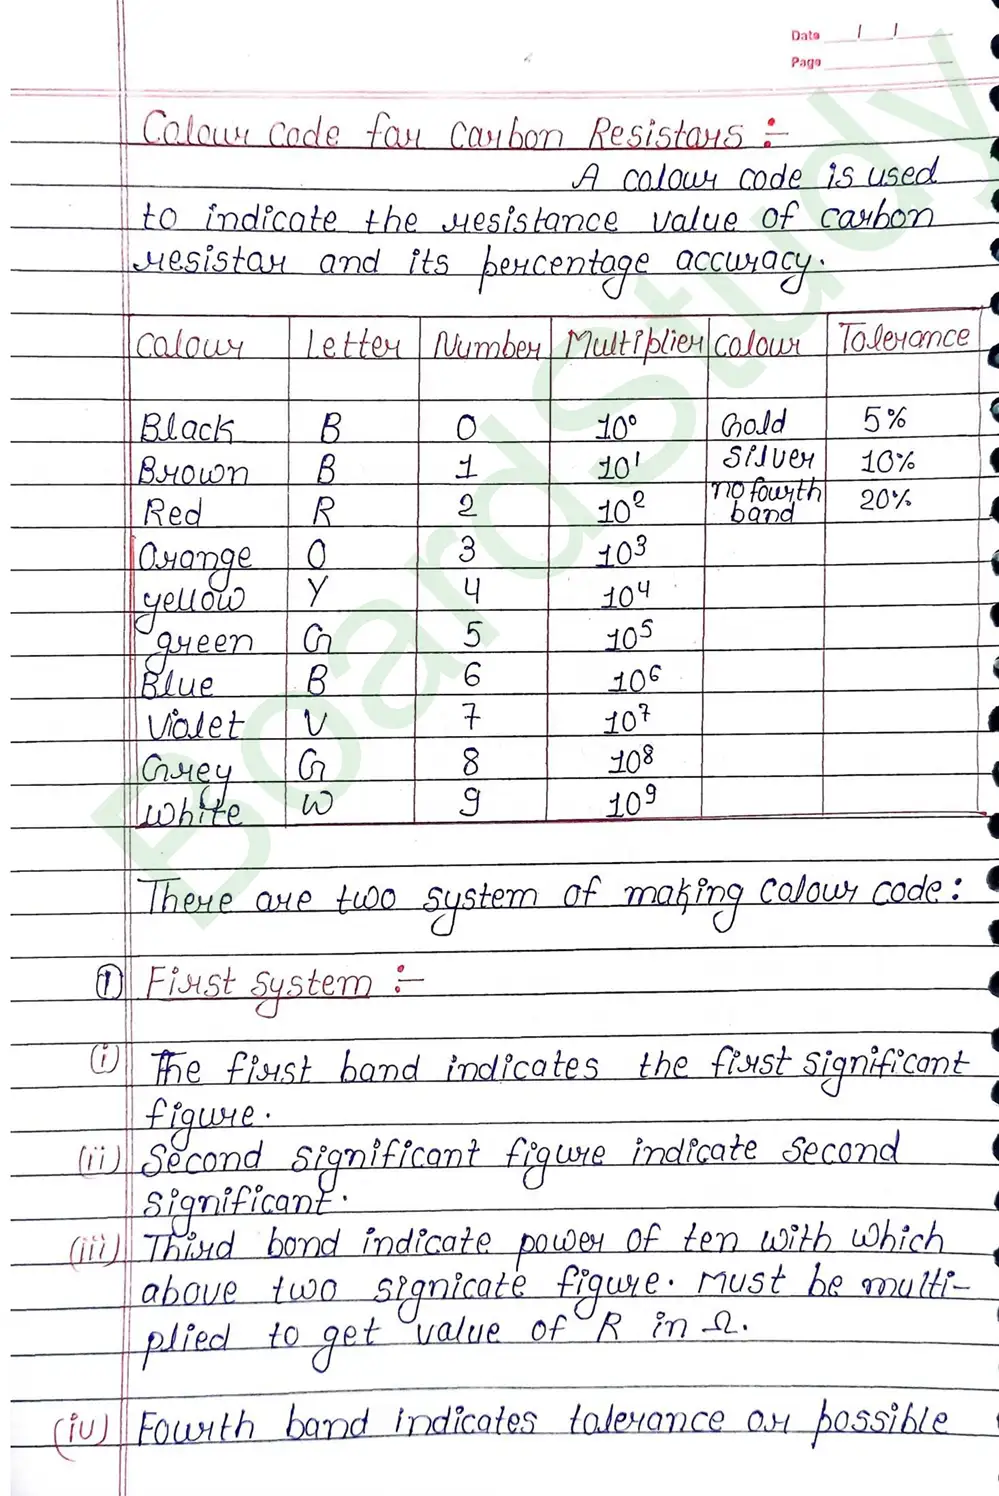 Date / /
Page
Colour code for carbon Resistors :-
A colour code is used
to indicate the resistance value of carbon
resistor and its percentage accuracy.
Colour Letter Number Multiplier colour Tolerance
Black B 0 10⁰ Gold 5%
Brown B 1 10¹ Silver 10%
Red R 2 10² no fourth band 20%
Orange O 3 10³
yellow Y 4 10⁴
green G 5 10⁵
Blue B 6 10⁶
Violet V 7 10⁷
Grey G 8 10⁸
white W 9 10⁹
There are two system of making colour code:
① First system :-
(i) The first band indicates the first significant
figure.
(ii) Second significant figure indicate second
significant.
(iii) Third band indicate power of ten with which
above two signicate figure. Must be multi-
plied to get value of R in Ω.
(iv) Fourth band indicates tolerance or possible
BoardStudy